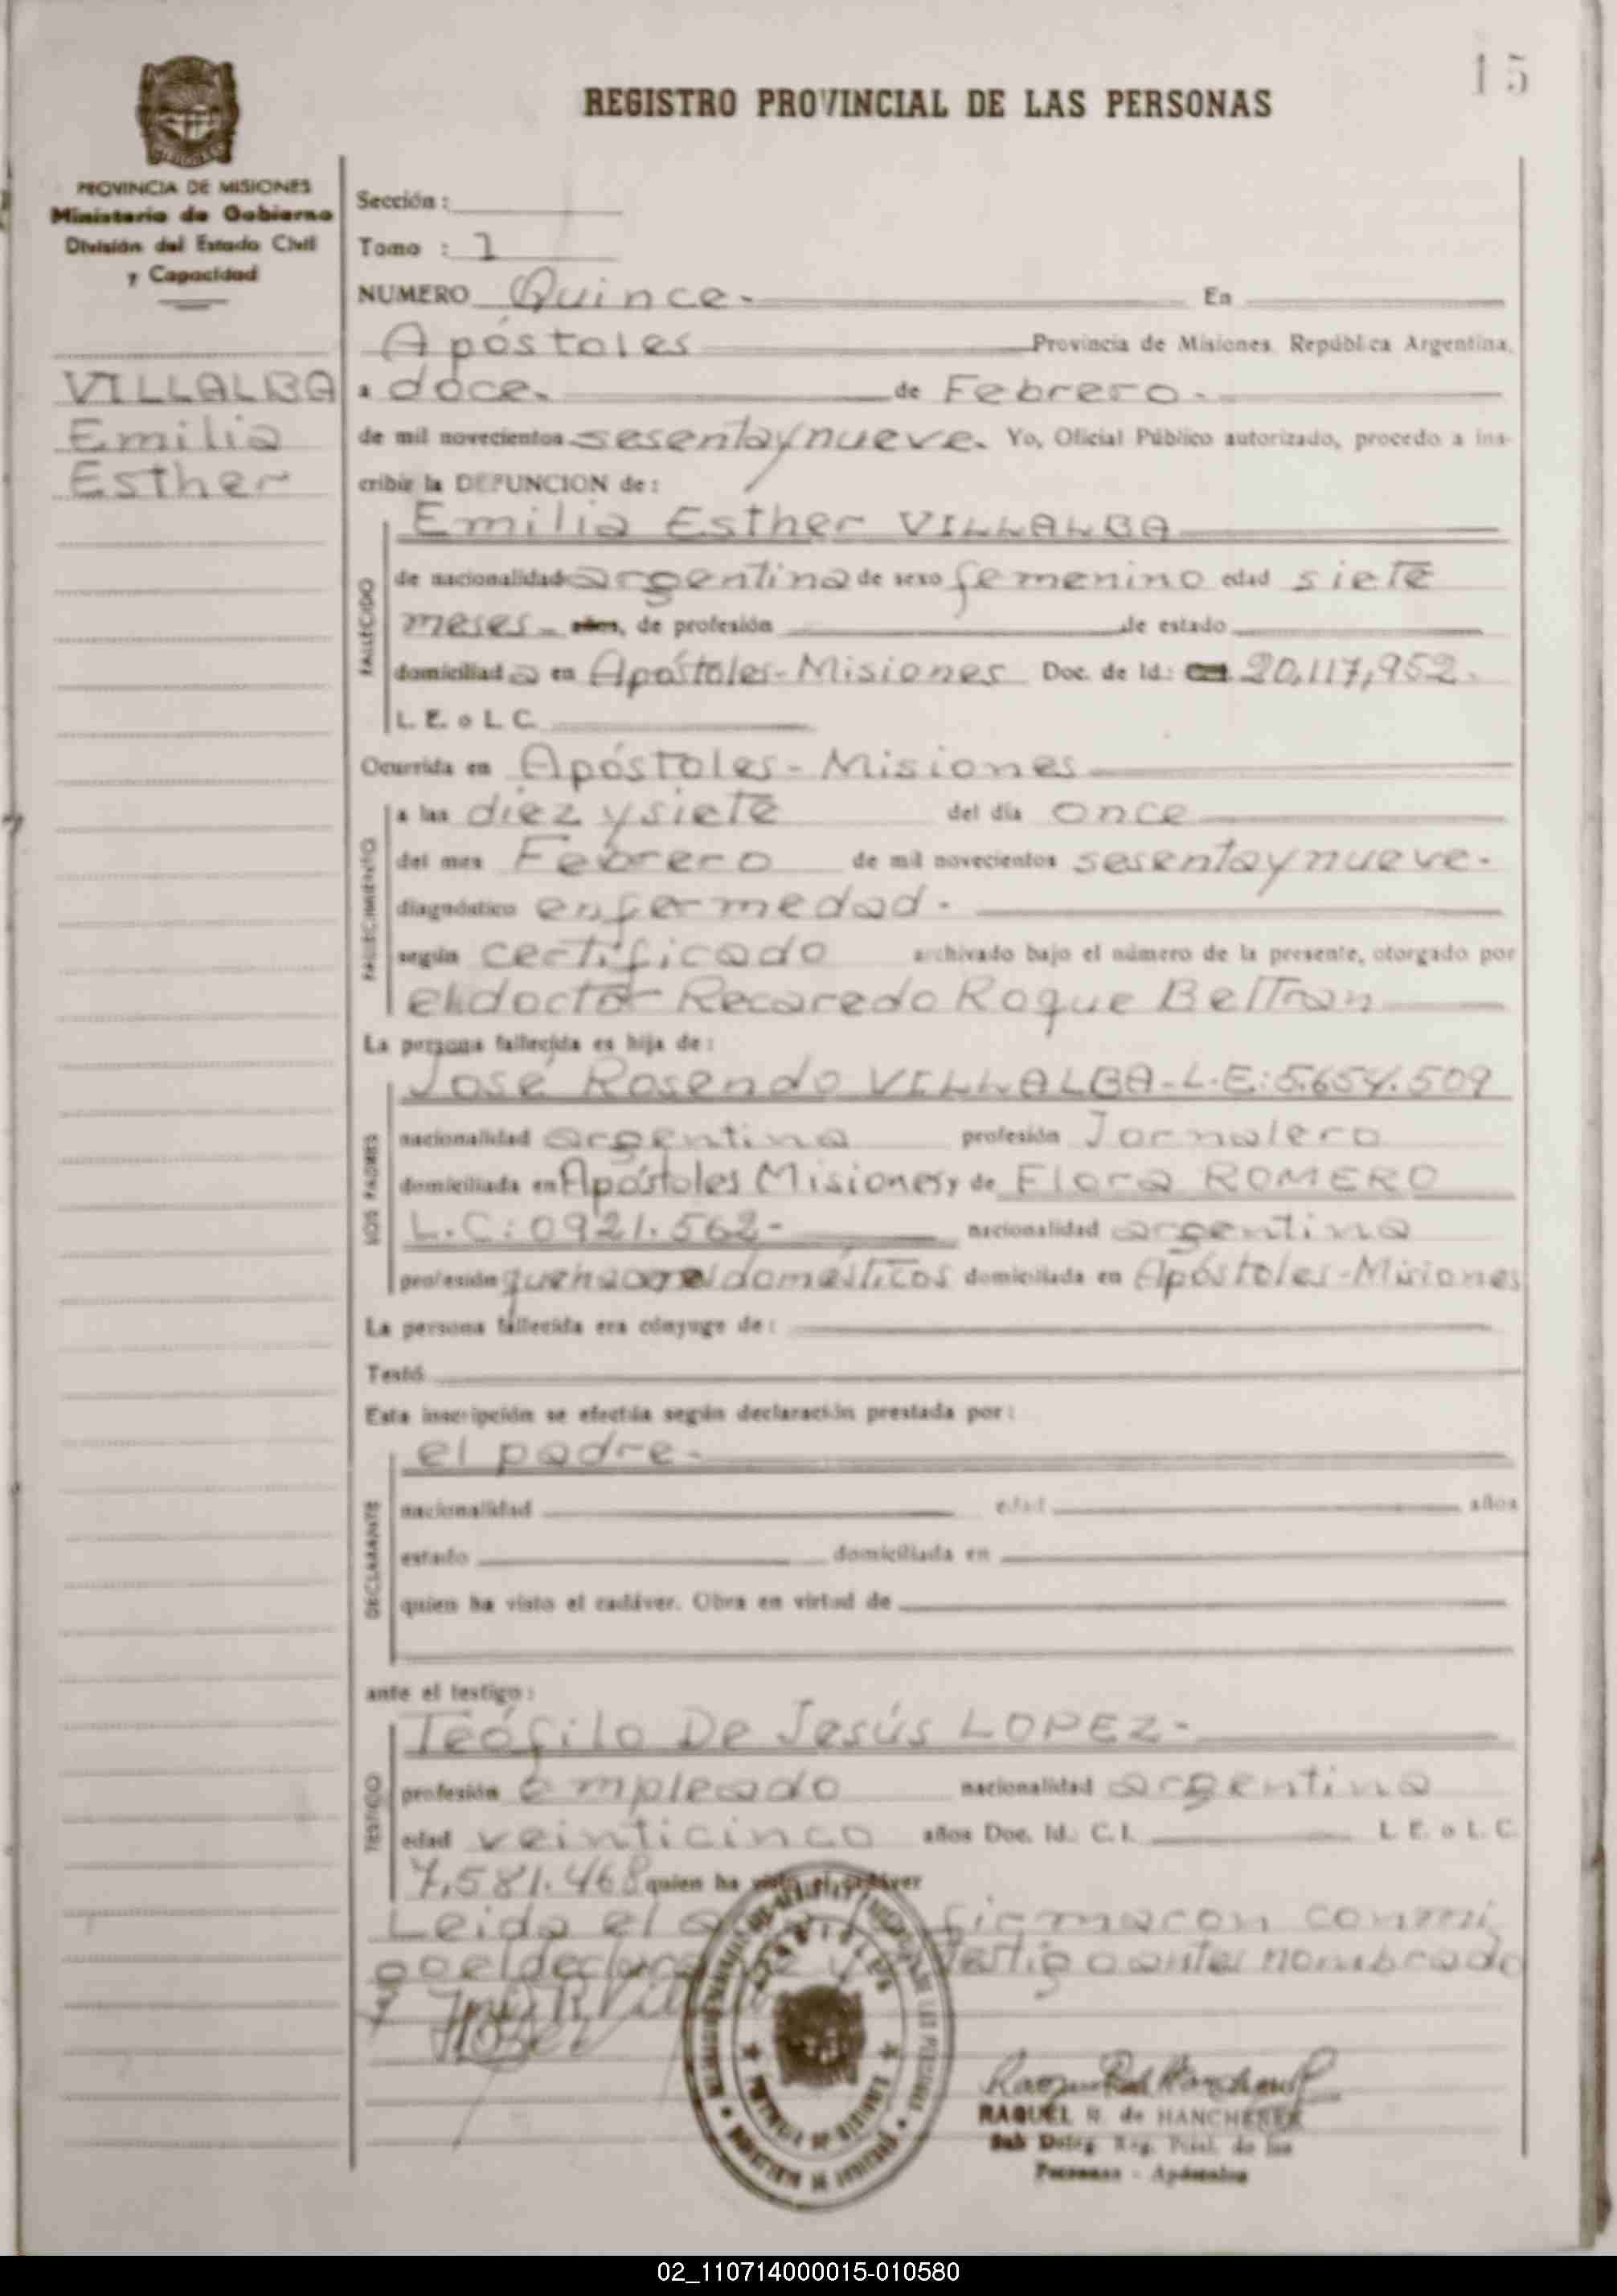 15
REGISTRO PROVINCIAL DE LAS PERSONAS
PROVINCIA DE MISIONES
Ministerio de Gobierno
División del Estado Civil
y Capacidad
Sección :
Tomo : 1
NUMERO Quince. En
Apóstoles Provincia de Misiones, República Argentina,
VILLALBA
Emilia
Esther
a doce. de Febrero.
de mil novecientos sesenta y nueve. Yo, Oficial Público autorizado, procedo a ins-
cribir la DEFUNCION de :
FALLECIDO
Emilia Esther VILLALBA
de nacionalidad argentina de sexo femenino edad siete
meses - años, de profesión de estado
domiciliad a en Apóstoles-Misiones Doc. de Id.: 20,117,952.
L. E. o L. C.
Ocurrida en Apóstoles - Misiones
FALLECIMIENTO
a las diez y siete del día once
del mes Febrero de mil novecientos sesenta y nueve.
diagnóstico enfermedad.
según certificado archivado bajo el número de la presente, otorgado por
el doctor Recaredo Roque Beltran
La persona fallecida es hija de :
LOS PADRES
José Rosendo VILLALBA-L.E:5.654.509
nacionalidad argentina profesión Jornalero
domiciliada en Apóstoles Misiones y de Flora ROMERO
L.C:0921.562- nacionalidad argentina
profesión quehaceres domésticos domiciliada en Apóstoles-Misiones
La persona fallecida era cónyuge de :
Testó
Esta inscripción se efectúa según declaración prestada por :
DECLARANTE
el padre.
nacionalidad edad años
estado domiciliada en
quien ha visto el cadáver. Obra en virtud de
ante el testigo :
TESTIGO
Teófilo De Jesús LOPEZ-
profesión empleado nacionalidad argentina
edad veinticinco años Doc. Id.: C. I. L. E. o L. C.
7.581.468 quien ha visto el cadáver
Leida el firmaron conmi
go el declara y testigo antes nombrado
RAQUEL R. de HANCHERUK
Sub Deleg. Reg. Pcial. de las
Personas - Apóstoles
02_110714000015-010580